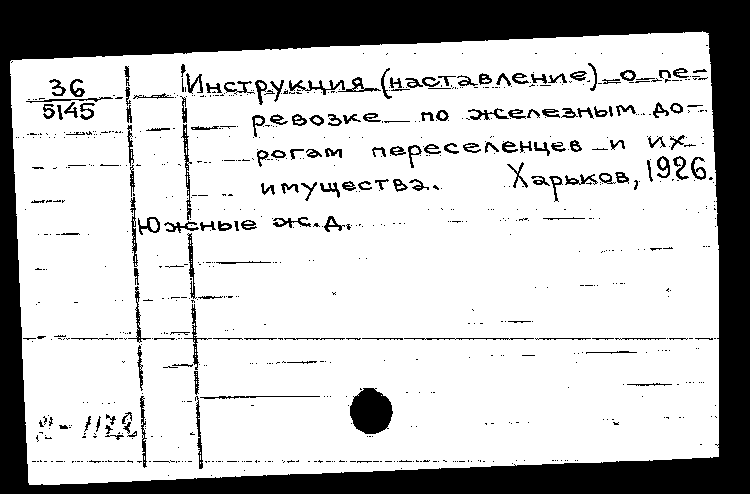 36
5145
Инструкция (наставление) о пе-
ревозке по железным до-
рогам переселенцев и их
имущества. Харьков, 1926.
Южные ж.д.